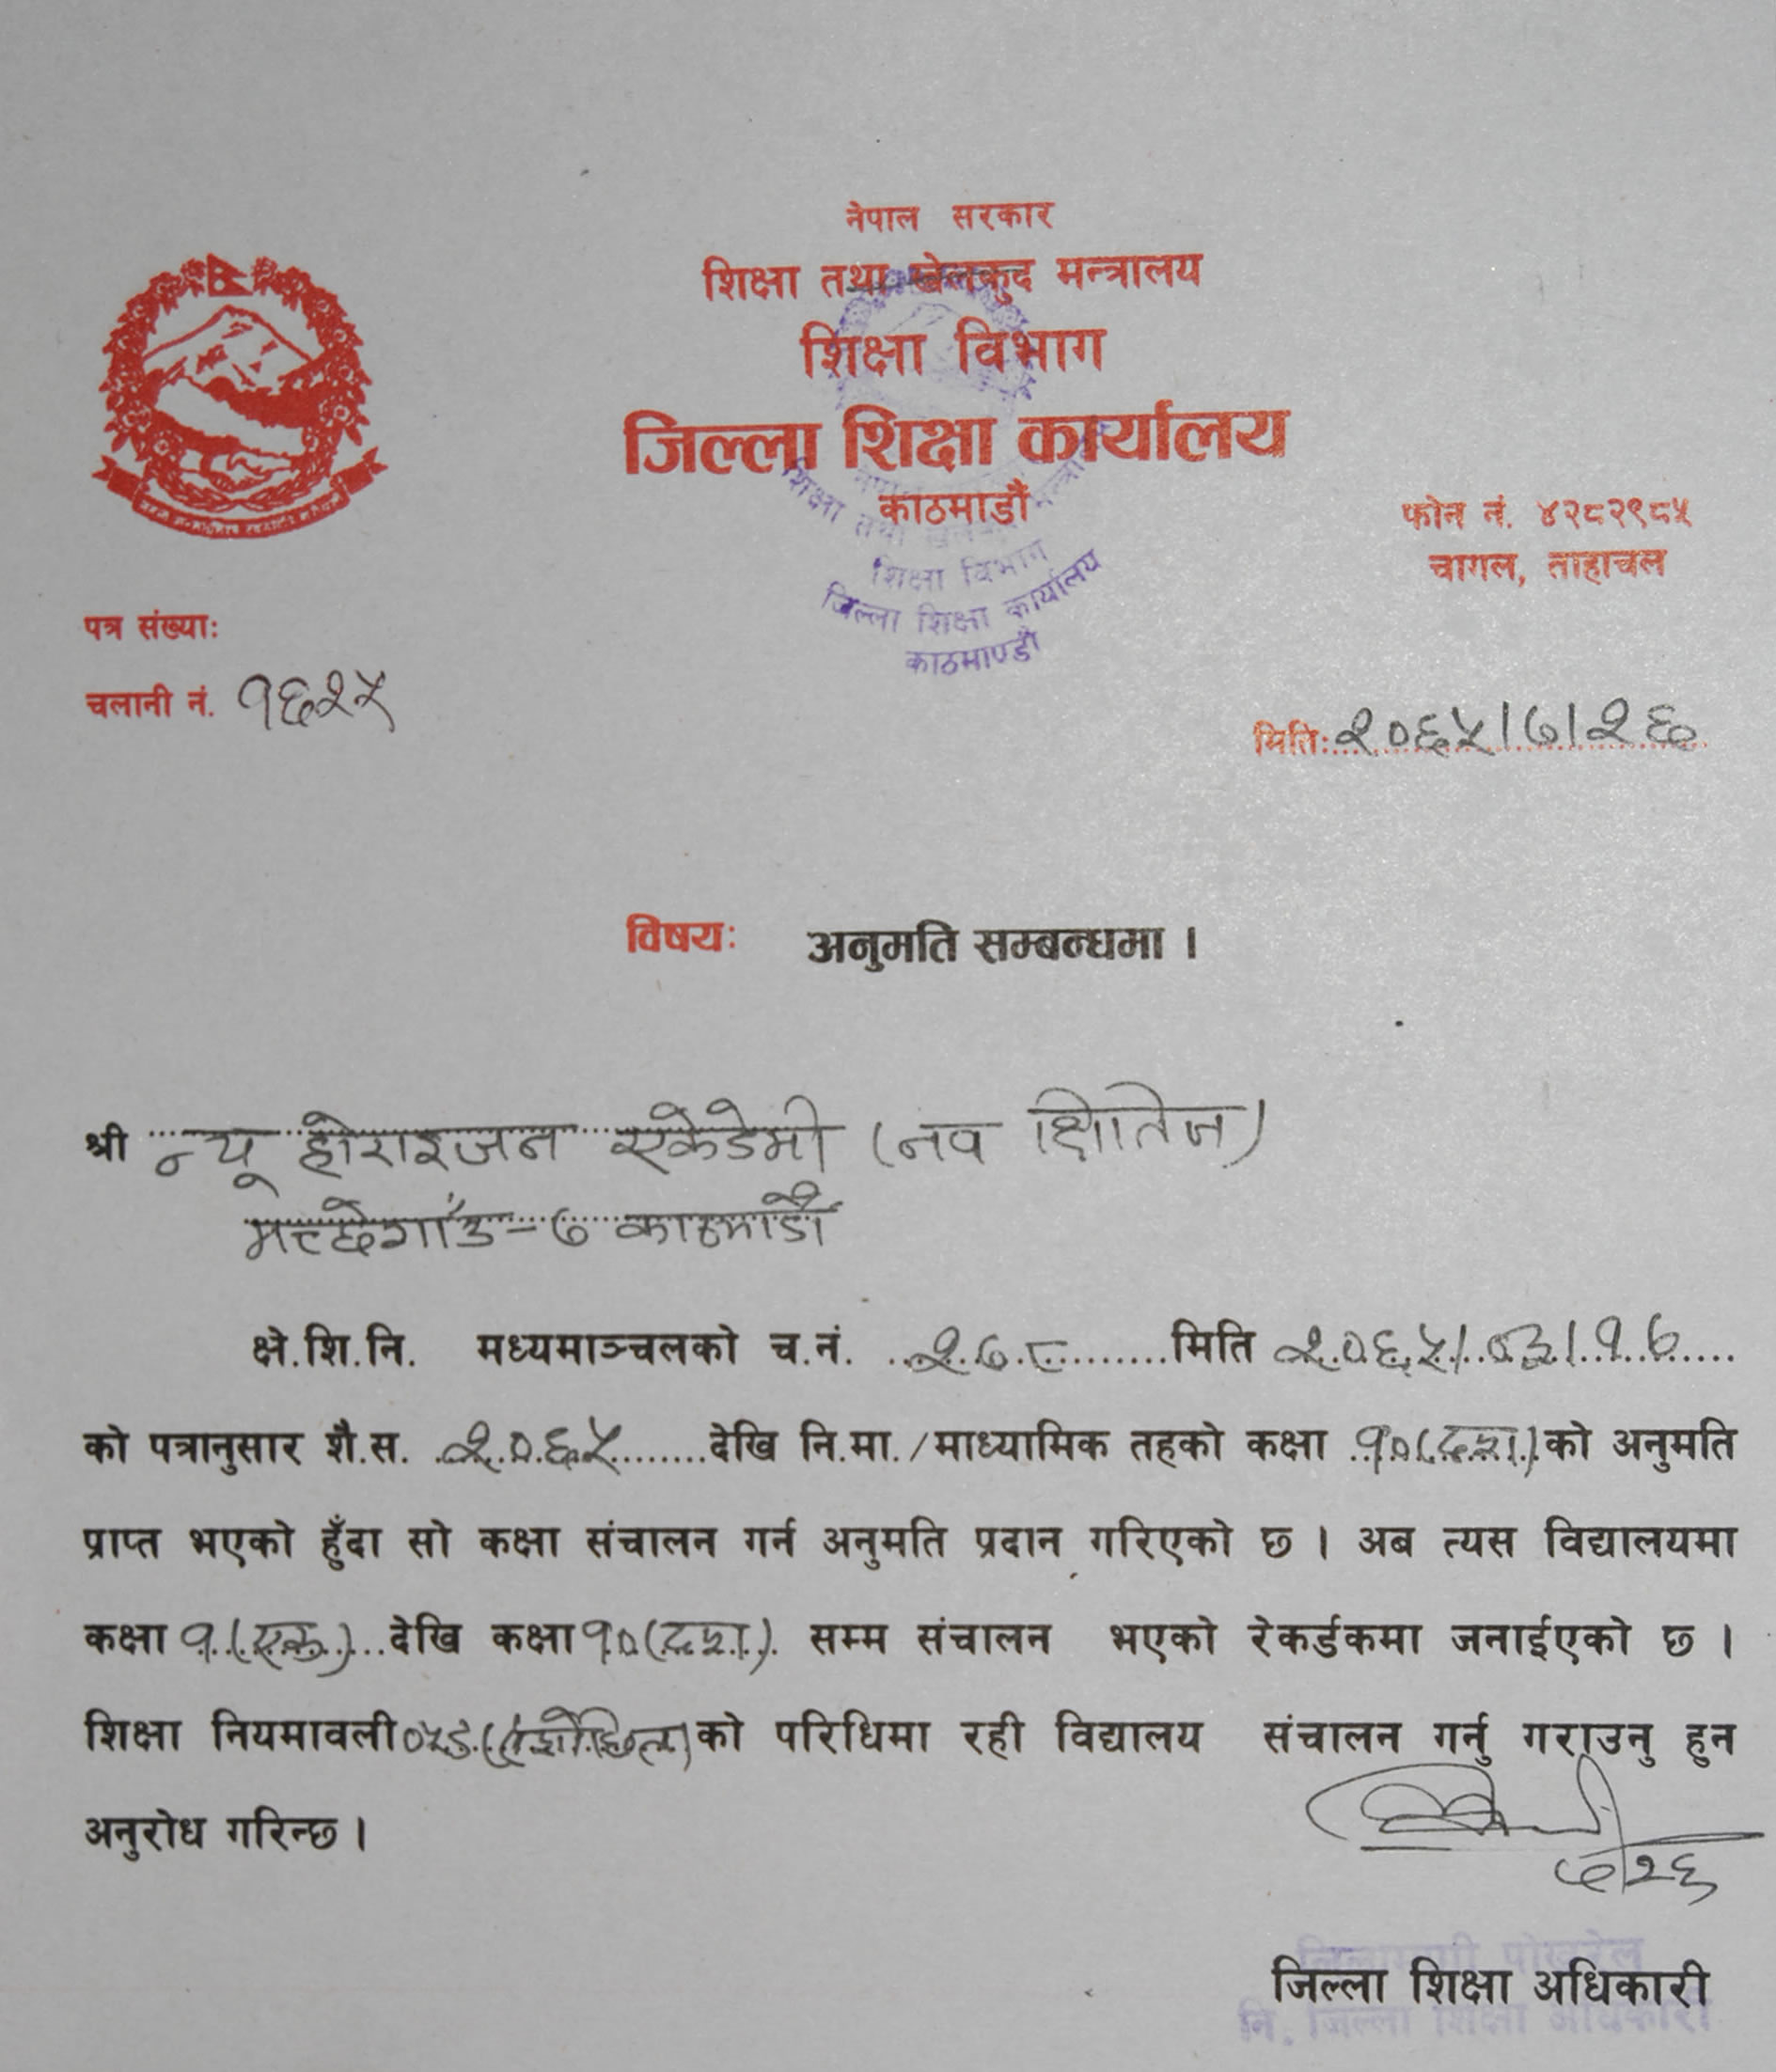 नेपाल सरकार
शिक्षा तथा खेलकुद मन्त्रालय
शिक्षा विभाग
जिल्ला शिक्षा कार्यालय
काठमाडौं
फोन नं. ४२८२९८५
चागल, ताहाचल
शिक्षा तथा
शिक्षा विभाग
जिल्ला शिक्षा कार्यालय
काठमाण्डौ
पत्र संख्याः
चलानी नं. १६२५
मितिः २०६५।७।२६
विषयः अनुमति सम्बन्धमा ।
श्री न्यू होराइजन एकेडेमी (नव क्षितिज)
मच्छेगाँउ-७ काठमाडौं
क्षे.शि.नि. मध्यमाञ्चलको च.नं. २७८ मिति २०६५।०३।१७
को पत्रानुसार शै.स. २०६५ देखि नि.मा./माध्यामिक तहको कक्षा १०(दश) को अनुमति
प्राप्त भएको हुँदा सो कक्षा संचालन गर्न अनुमति प्रदान गरिएको छ । अब त्यस विद्यालयमा
कक्षा १ (एक) देखि कक्षा १०(दश) सम्म संचालन भएको रेकर्डकमा जनाईएको छ ।
शिक्षा नियमावली को परिधिमा रही विद्यालय संचालन गर्नु गराउनु हुन
अनुरोध गरिन्छ ।
७/२६
पोखरेल
जिल्ला शिक्षा अधिकारी
नि. जिल्ला शिक्षा अधिकारी